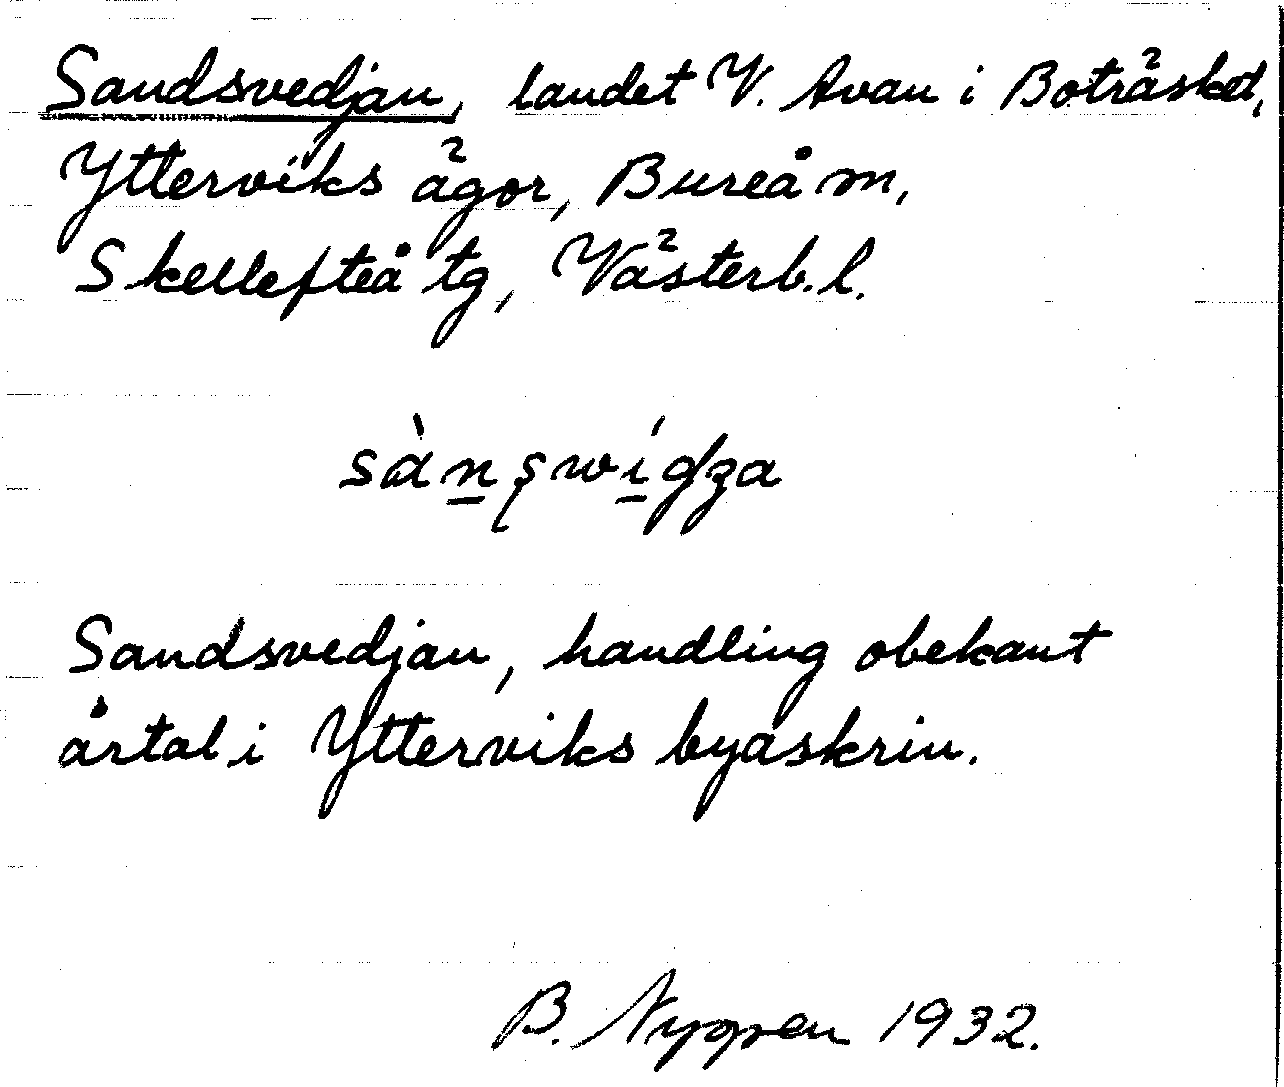 Sandsvedjan, landet V. Avan i Boträsket,
Ytterviks ägor, Bureå m,
Skellefteå tg, Västerb. l.
sàn̲ʂwí̲dʒa
Sandsvedjan, handling obekant
årtal i Ytterviks byaskrin.
B. Nygren 1932.